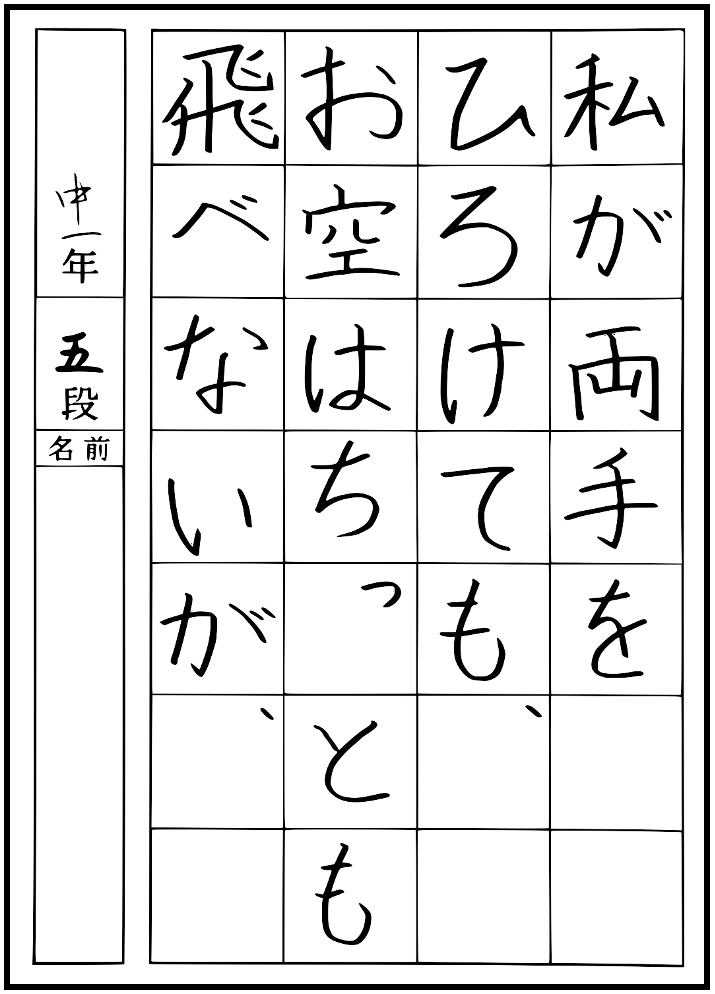 私が両手を
ひろけても、
お空はちっとも
飛べないが、
中一年
五段
名前